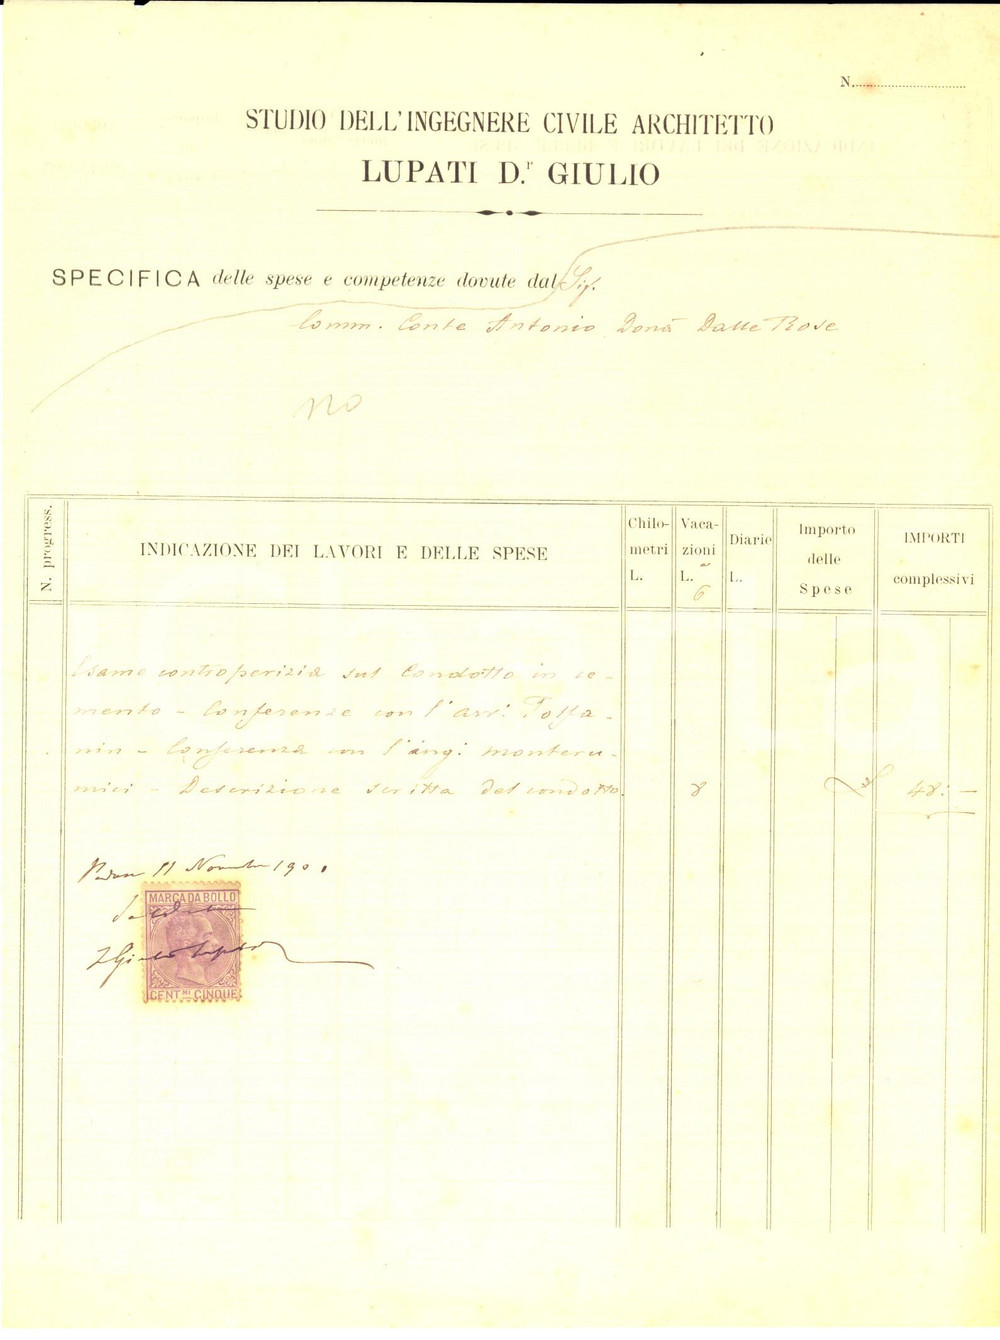 N.
STUDIO DELL'INGEGNERE CIVILE ARCHITETTO
LUPATI D.r GIULIO
SPECIFICA delle spese e competenze dovute dal Sig.
Comm. Conte Antonio Donà Dalle Rose
NO
N. progress.
INDICAZIONE DEI LAVORI E DELLE SPESE
Chilo-
metri
L.
Vaca-
zioni
L.
6
Diarie
L.
Importo
delle
Spese
IMPORTI
complessivi
Esame controperizia sul condotto in ce-
mento - Conferenze con l'avv. Toffa-
nin - Conferenza con l'ing. Monteru-
mici - Descrizione scritta del condotto. 8 48: -
Padova 11 Novembre 1900
MARCA DA BOLLO
Saldato
Giulio Lupati
CENT.MI CINQUE